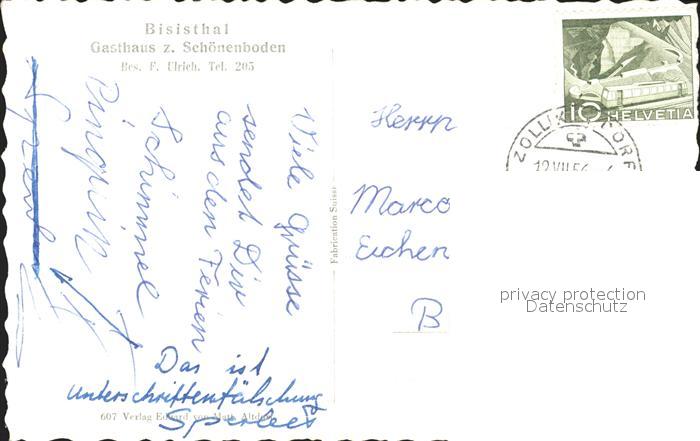 Bisisthal
Gasthaus z. Schönenboden
Bes. F. Ulrich. Tel. 205
Viele Grüsse
sendet Dir
aus den Ferien
Schimmel
Das ist
Unterschriftenfälschung
Sperber
607 Verlag Eduard von Matt, Altdorf
Fabrication Suisse
Herrn
Marco
Eichen
B
10 HELVETIA
privacy protection
Datenschutz